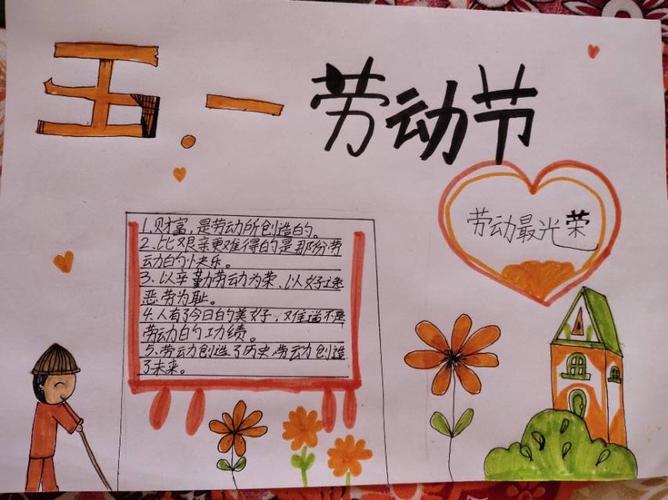 五.一劳动节
劳动最光荣
1.财富,是劳动所创造的。
2.比艰辛更难得的是那份劳
动的快乐。
3.以辛勤劳动为荣、以好逸
恶劳为耻。
4.人有了今日的美好,难道不是
劳动的功绩。
5.劳动创造了历史,劳动创造
了未来。